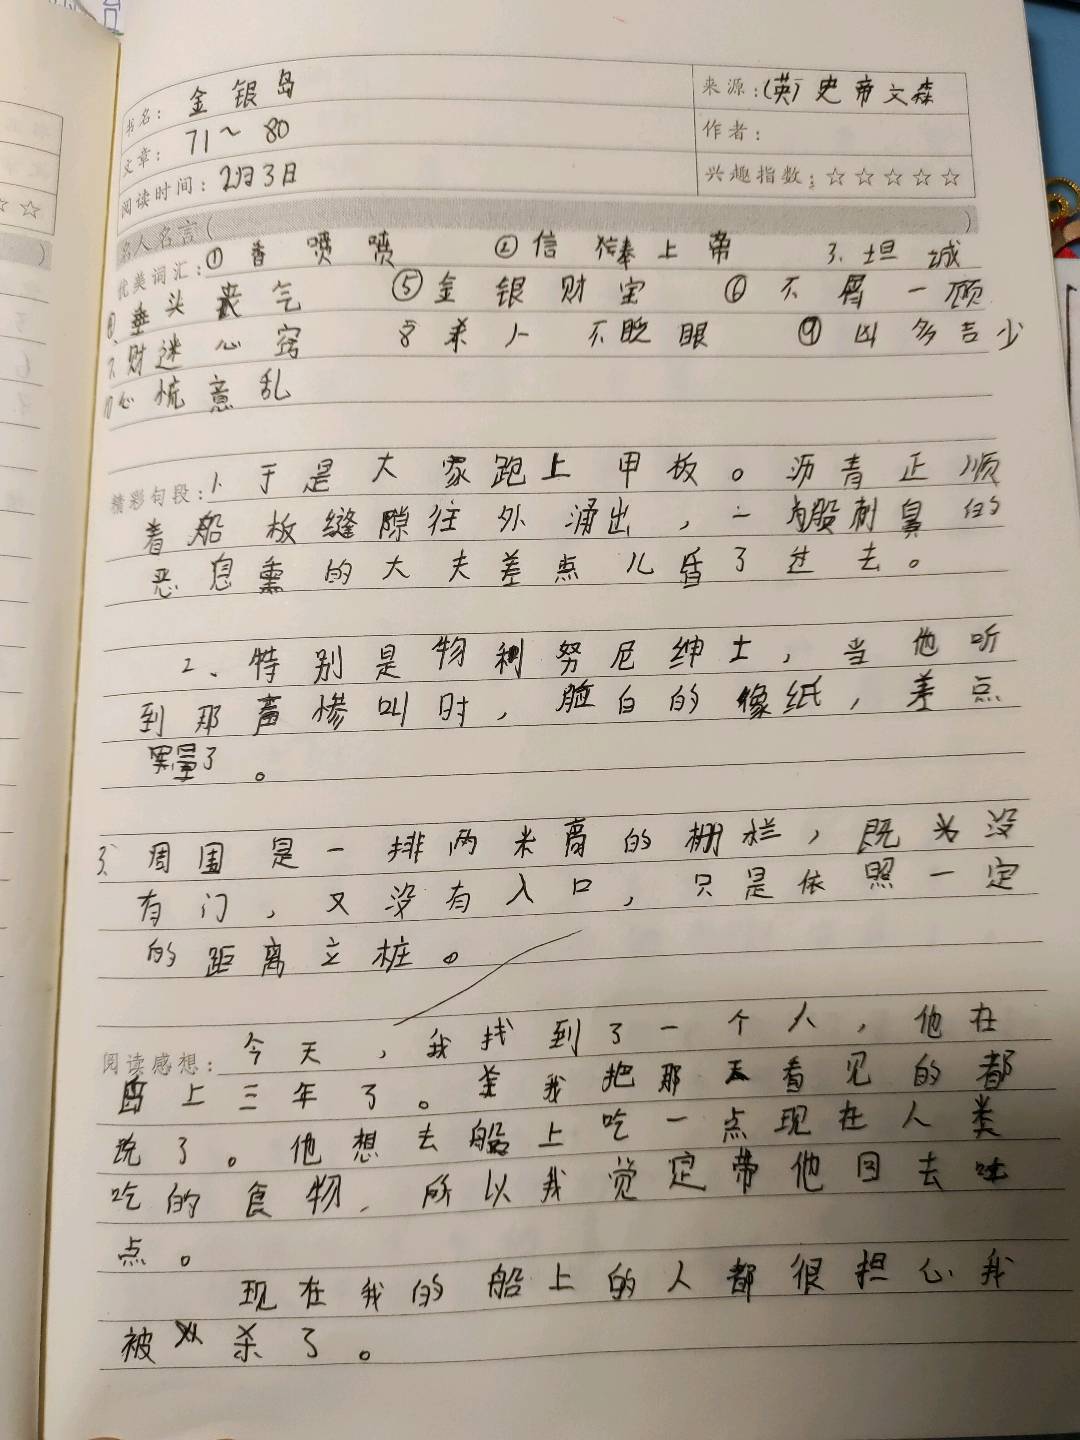 书名：金银岛
来源：(英)史帝文森
文章：71～80
作者：
阅读时间：2月3日
兴趣指数：☆☆☆☆☆
名人名言（ ）
优美词汇：①香喷喷 ②信奉上帝 3.坦诚
④垂头丧气 ⑤金银财宝 ⑥不屑一顾
7.财迷心窍 8杀人不眨眼 ⑨凶多吉少
10心慌意乱
精彩句段：1.于是大家跑上甲板。沥青正顺
着船板缝隙往外涌出，一股刺鼻的
恶息熏的大夫差点儿昏了过去。
2、特别是物利努尼绅士，当他听
到那声惨叫时，脸白的像纸，差点
晕了。
3、周围是一排两米高的栅栏，既没
有门，又没有入口，只是依照一定
的距离立桩。
阅读感想：今天，我找到了一个人，他在
岛上三年了。我把那天看见的都
说了。他想去船上吃一点现在人类
吃的食物，所以我觉定带他回去吃
点。
现在我的船上的人都很担心我
被杀了。